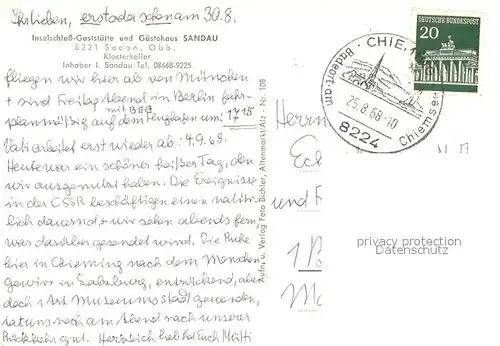 Ihr lieben, erst oder schon am 30.8.
Inselschloß-Gaststätte und Gästehaus SANDAU
8221 Seeon, Obb.
Klosterkeller
Inhaber I. Sandau Tel. 08668-9225
fliegen wir hier ab von München
+ sind Freitag Abend in Berlin fahr-
mit BEA
planmäßig auf dem Flughafen um 17 15
Vati arbeitet erst wieder ab: 4.9.68.
Heute war ein schöner heißer Tag, den
wir ausgenutzt haben. Die Ereignisse
in der CSSR beschäftigen einen natür-
lich dauernd + wir sehen abends fern
was darüber gesendet wird. Die Ruhe
hier in Chieming nach dem Menschen-
gewirr in Salzburg, entzückend, aber
doch 1 Art Museumsstadt geworden,
tat uns noch am Abend nach unserer
Rückkehr gut. Herzlich hab hat Euch Mutti
Aufn. u. Verlag Foto Bichler, Altenmarkt/Alz - Nr. 108
DEUTSCHE BUNDESPOST
20
CHIE
Badeort am Chiemsee
25.8.68-10
8224
Herrn
und F
1
privacy protection
Datenschutz